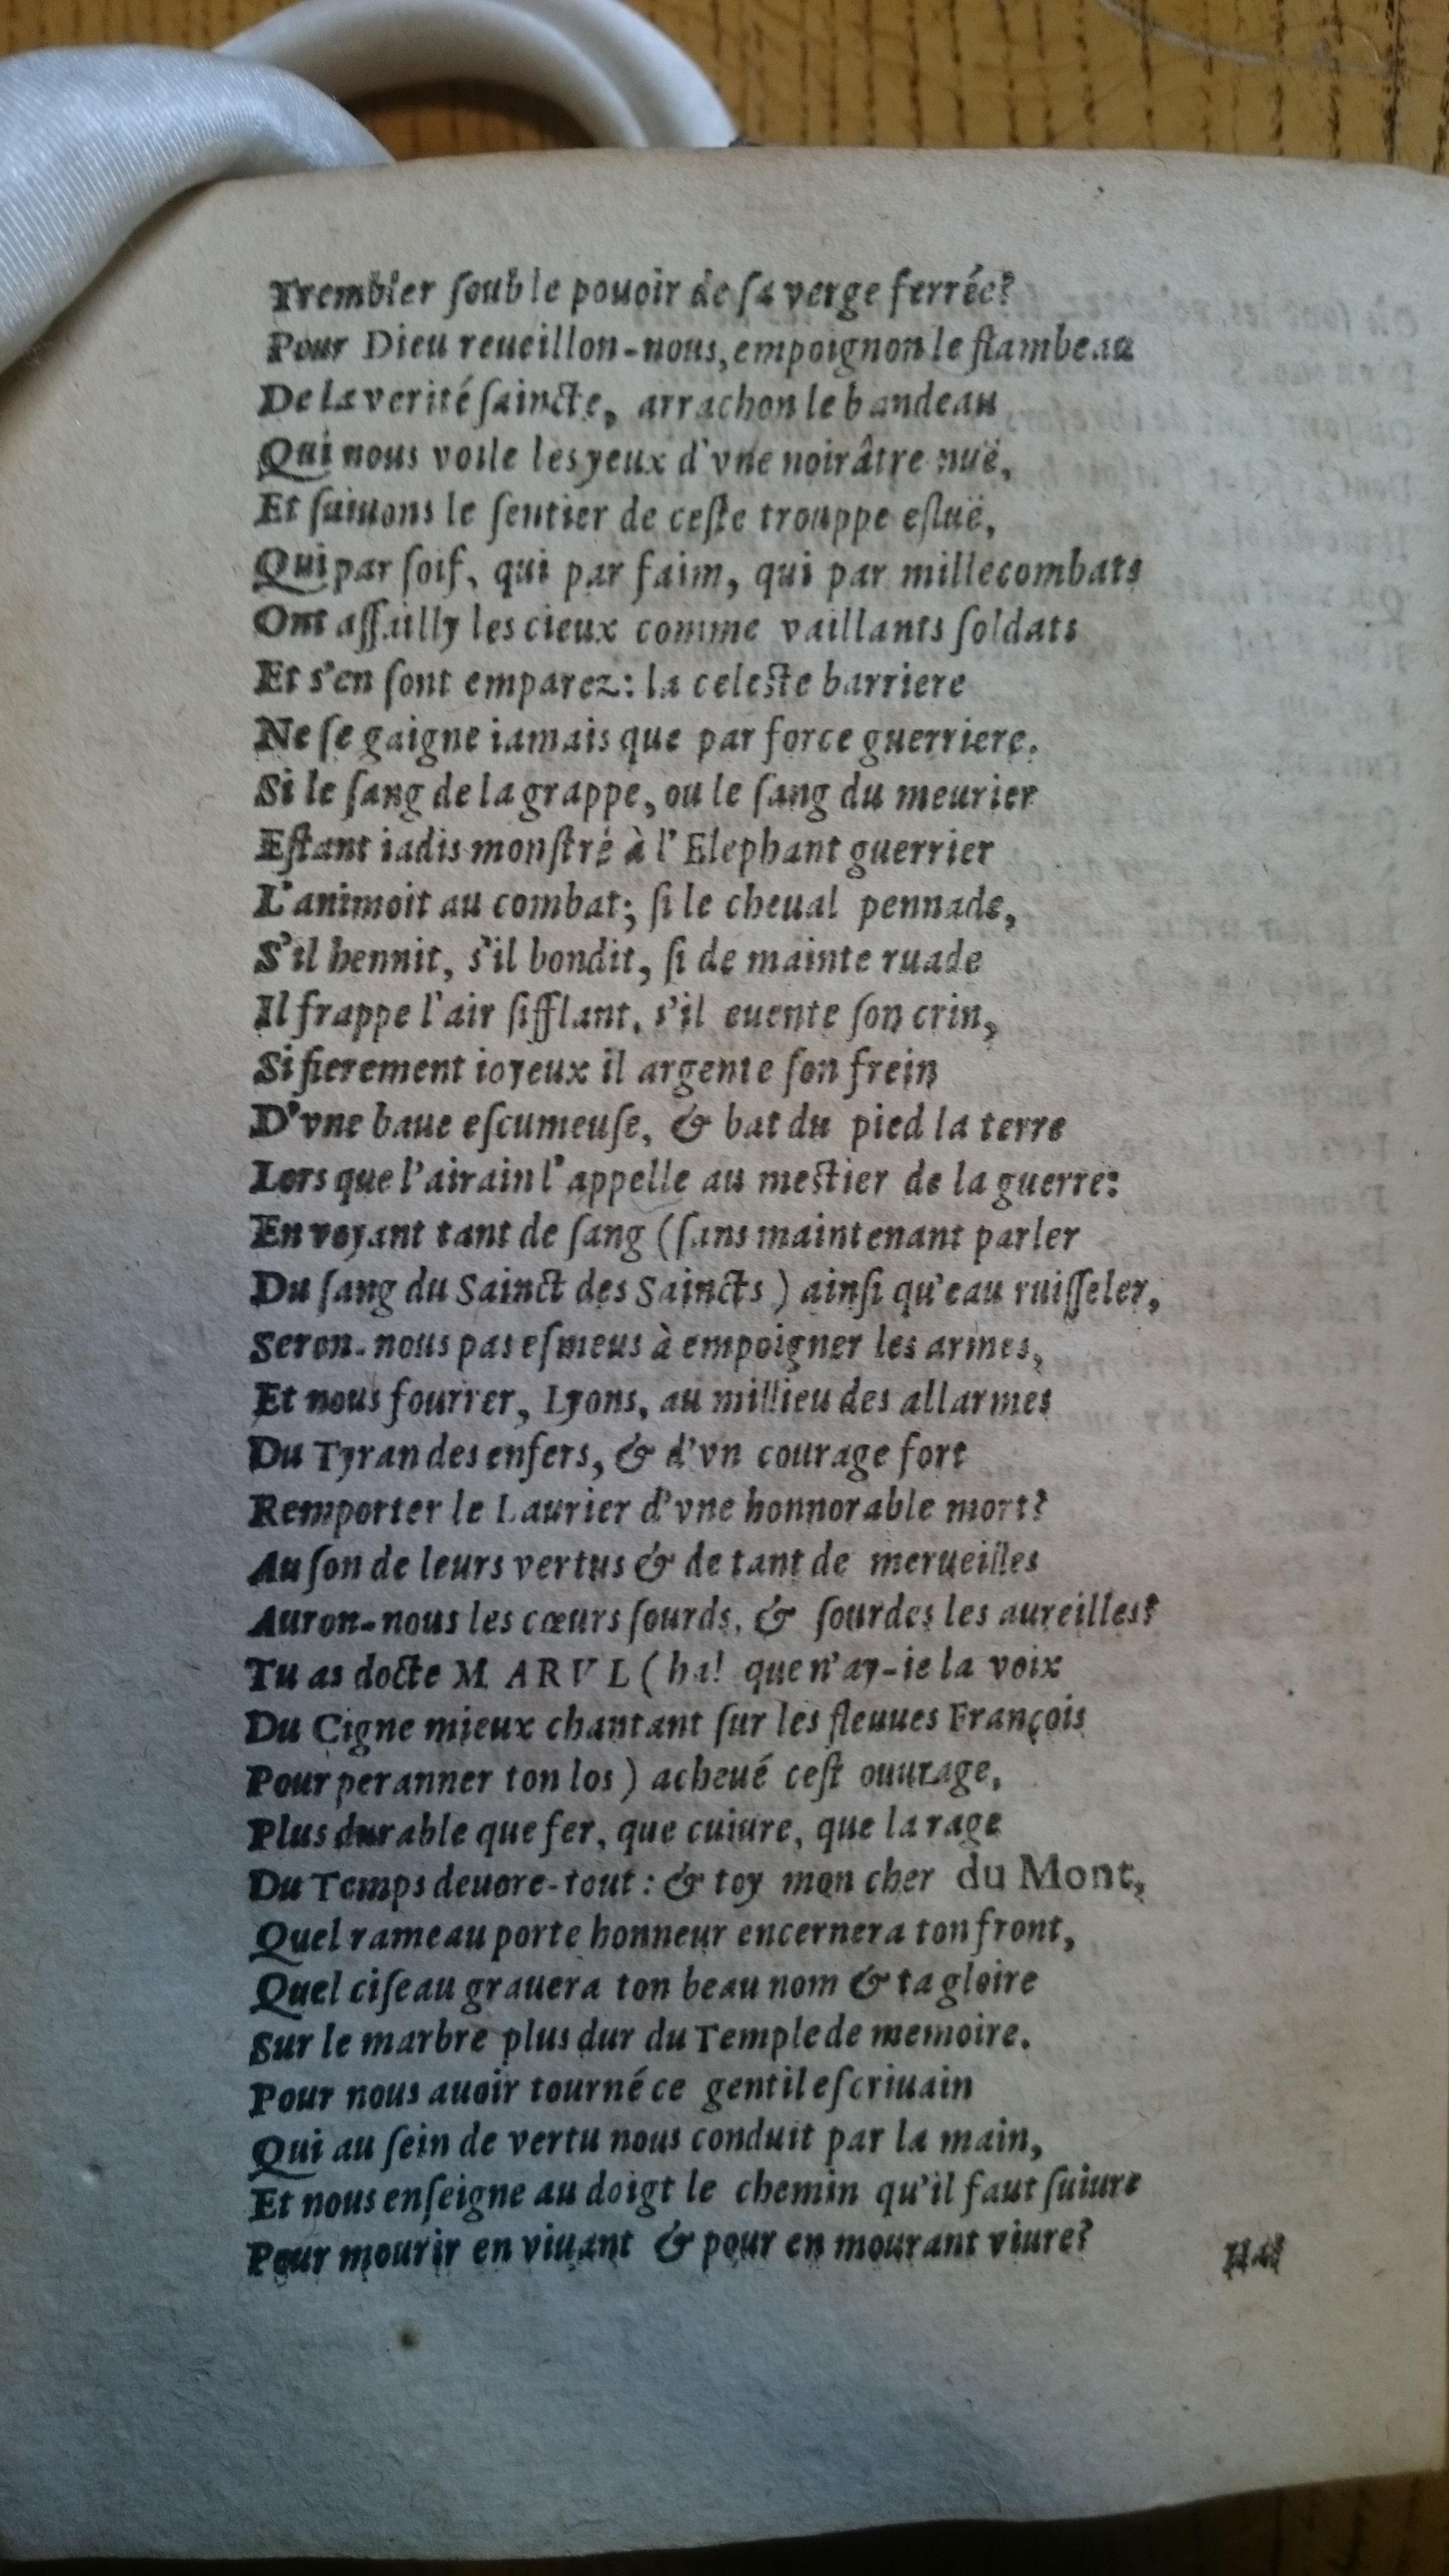 Trembler ſoub le pouoir de ſa verge ferrée?
Pour Dieu reueillon-nous, empoignon le flambeau
De la verité ſaincte, arrachon le bandeau
Qui nous voile les yeux d'vne noirâtre nuë,
Et ſuiuons le ſentier de ceſte trouppe eſluë,
Qui par ſoif, qui par faim, qui par mille combats
Ont aſſailly les cieux comme vaillants ſoldats
Et s'en ſont emparez: la celeſte barriere
Ne ſe gaigne iamais que par force guerriere.
Si le ſang de la grappe, ou le ſang du meurier
Eſtant iadis monſtré à l'Elephant guerrier
L'animoit au combat; ſi le cheual pennade,
S'il hennit, s'il bondit, ſi de mainte ruade
Il frappe l'air ſifflant, s'il euente ſon crin,
Si fierement ioyeux il argente ſon frein
D'vne baue eſcumeuſe, & bat du pied la terre
Lors que l'airain l'appelle au meſtier de la guerre:
En voyant tant de ſang (ſans maintenant parler
Du ſang du Sainct des Saincts) ainſi qu'eau ruiſſeler,
Seron-nous pas eſmeus à empoigner les armes,
Et nous fourrer, Lyons, au millieu des allarmes
Du Tyran des enfers, & d'vn courage fort
Remporter le Laurier d'vne honnorable mort?
Au ſon de leurs vertus & de tant de merueilles
Auron-nous les cœurs ſourds, & ſourdes les aureilles?
Tu as docte MARVL (ha! que n'ay-ie la voix
Du Cigne mieux chantant ſur les fleuues François
Pour peranner ton los) acheué ceſt ouurage,
Plus durable que fer, que cuiure, que la rage
Du Temps deuore-tout: & toy mon cher du Mont,
Quel rameau porte honneur encernera ton front,
Quel ciſeau grauera ton beau nom & ta gloire
Sur le marbre plus dur du Temple de memoire.
Pour nous auoir tourné ce gentil eſcriuain
Qui au ſein de vertu nous conduit par la main,
Et nous enſeigne au doigt le chemin qu'il faut ſuiure
Pour mourir en viuant & pour en mourant viure?
Ha!